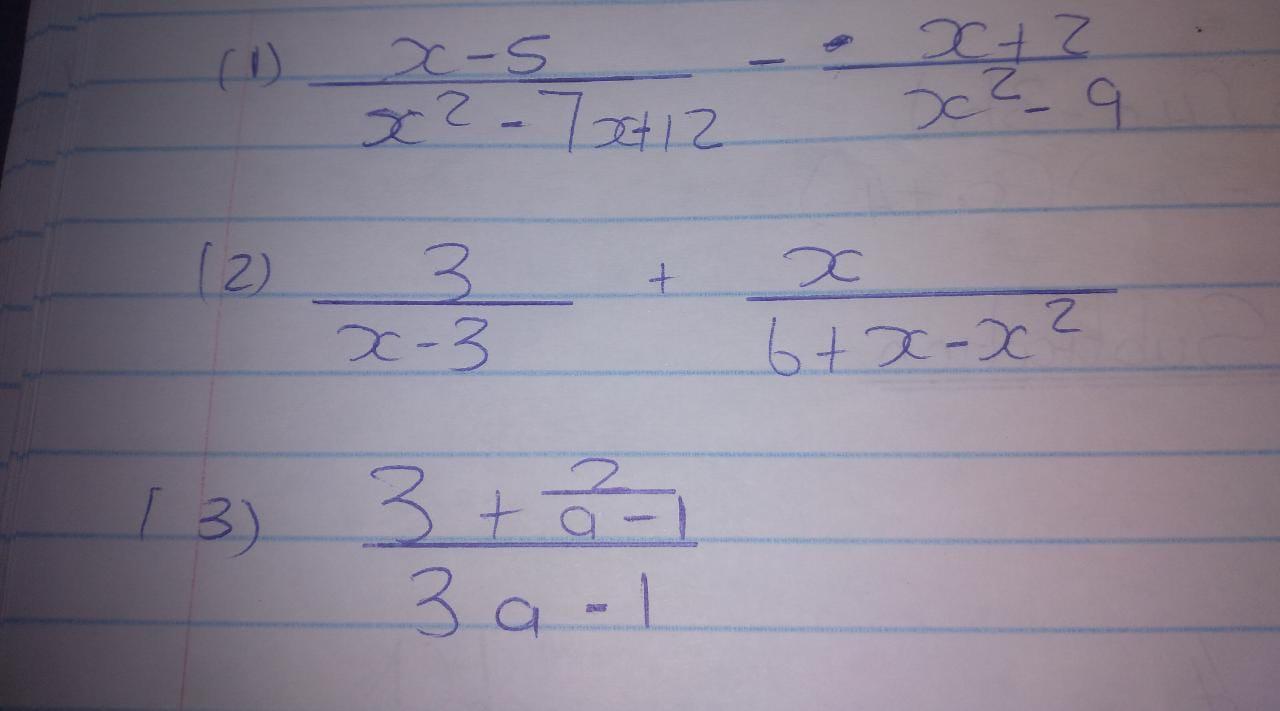 (1) x-5 / x² - 7x+12 - x+2 / x² - 9
(2) 3 / x-3 + x / 6+x-x²
(3) 3 + 2 / a-1 / 3a-1